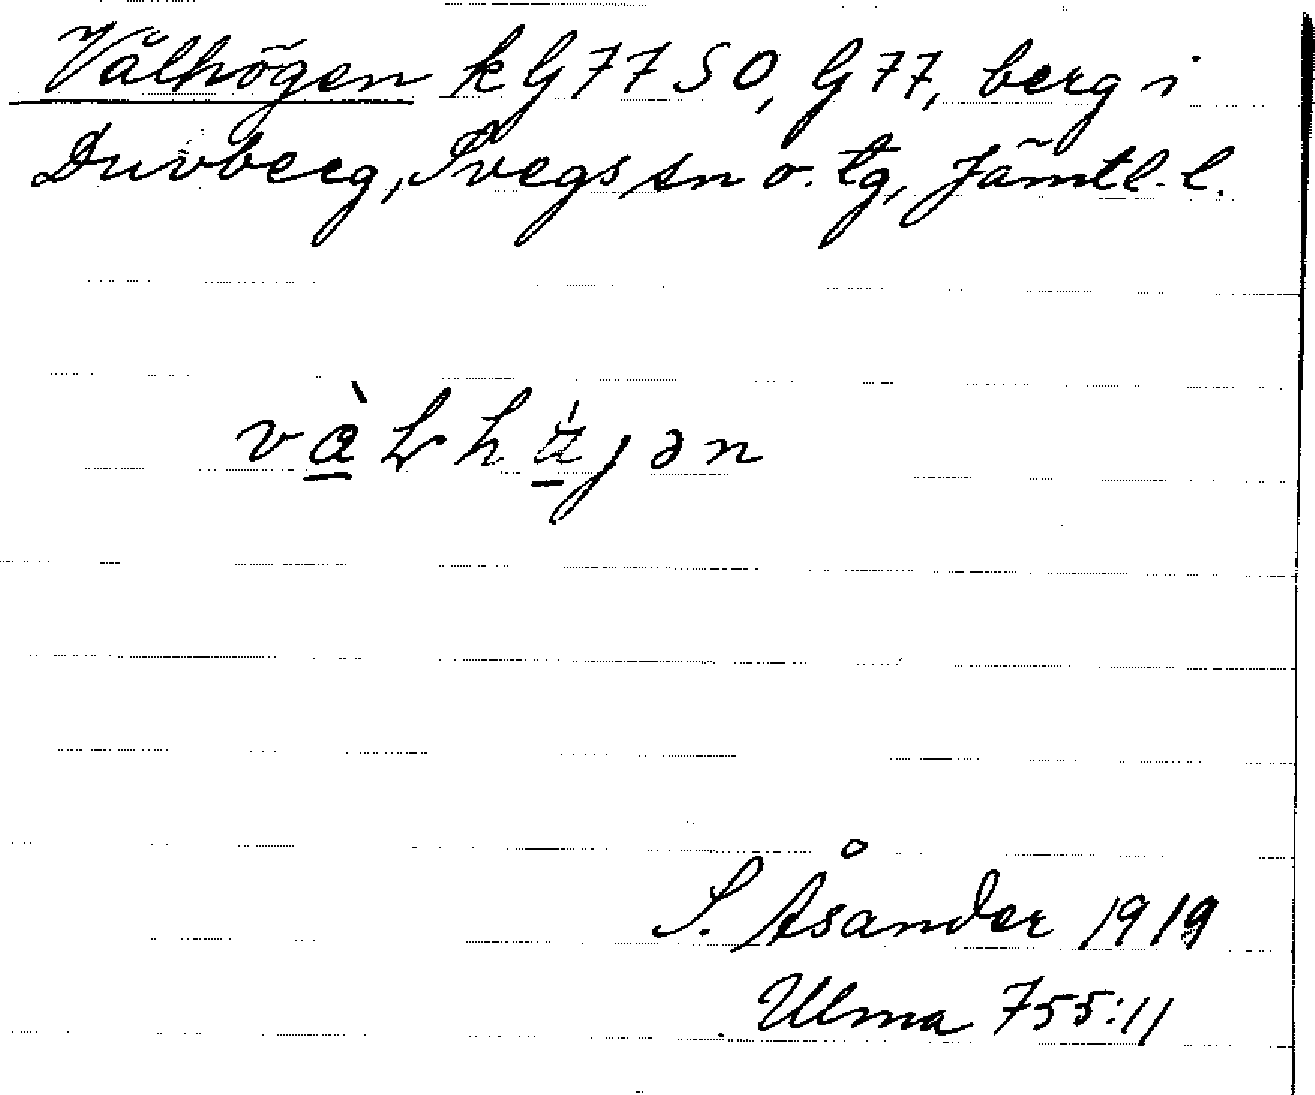 Vålhögen k G 77 SO, G 77, berg i
Duvberg, Svegs sn o. tg, Jämtl. l.
vàLhä́jən
S. Åsander 1919
Ulma 755:11